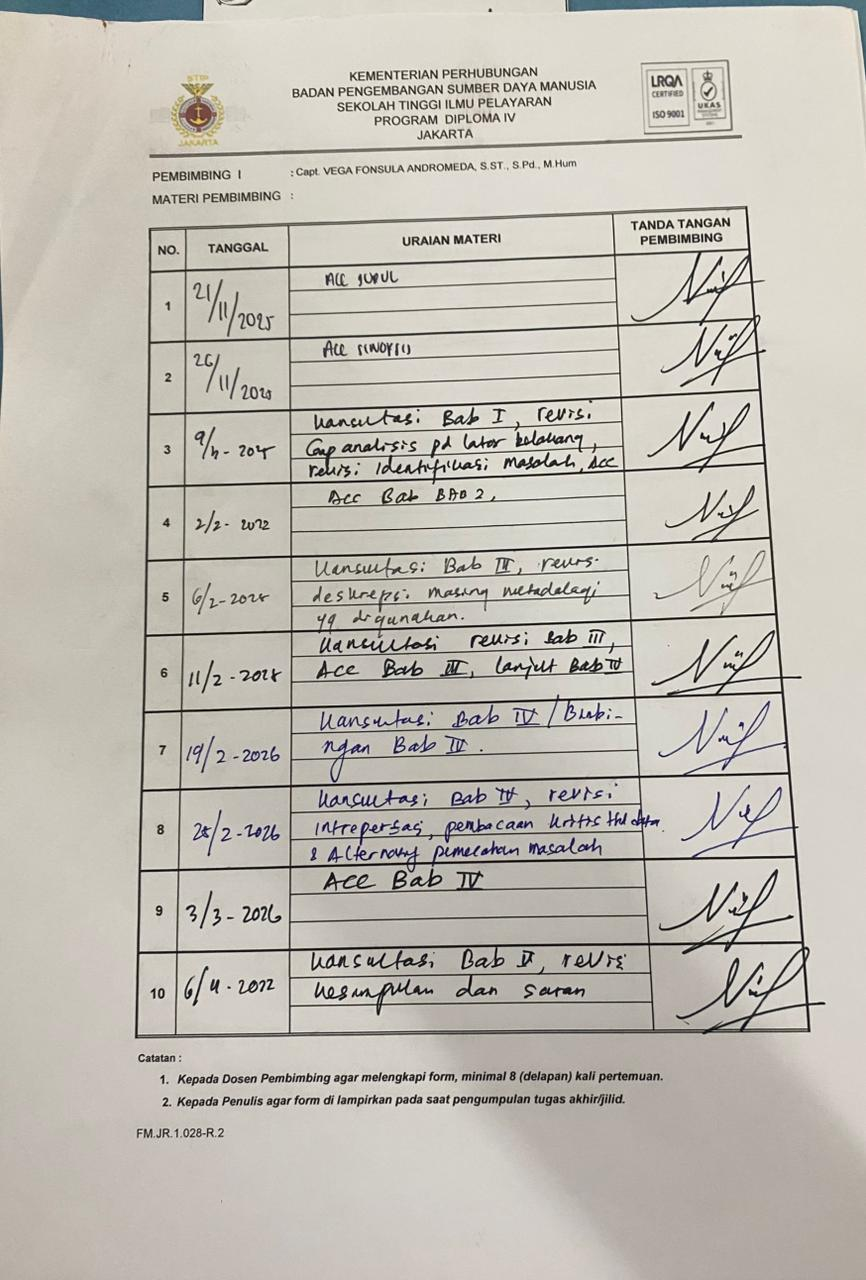 STIP
JAKARTA
KEMENTERIAN PERHUBUNGAN
BADAN PENGEMBANGAN SUMBER DAYA MANUSIA
SEKOLAH TINGGI ILMU PELAYARAN
PROGRAM DIPLOMA IV
JAKARTA
LRQA
CERTIFIED
ISO 9001
UKAS
PEMBIMBING I : Capt. VEGA FONSULA ANDROMEDA, S.ST., S.Pd., M.Hum
MATERI PEMBIMBING :
NO. TANGGAL URAIAN MATERI TANDA TANGAN PEMBIMBING
1 21/11/2025 ACC JUDUL
2 26/11/ ACC SINOPSIS
3 Konsultasi Bab I, revisi
Gap analisis pd latar belakang,
revisi identifikasi masalah, Acc
4 2/2- Acc Bab BAB 2,
5 6/2- Konsultasi Bab III, revisi
deskripsi masing metodologi
yg digunakan.
6 11/2- Konsultasi revisi Bab III,
Acc Bab III, lanjut Bab IV
7 19/2-2026 Konsultasi Bab IV / Bimbi-
ngan Bab IV.
8 25/2-2026 Konsultasi Bab IV, revisi
intrepersasi, pembacaan kritis thd data
& Alternatif pemecahan masalah
9 3/3-2026 Acc Bab IV
10 6/4- Konsultasi Bab V, revisi
kesimpulan dan saran
Catatan :
1. Kepada Dosen Pembimbing agar melengkapi form, minimal 8 (delapan) kali pertemuan.
2. Kepada Penulis agar form di lampirkan pada saat pengumpulan tugas akhir/jilid.
FM.JR.1.028-R.2